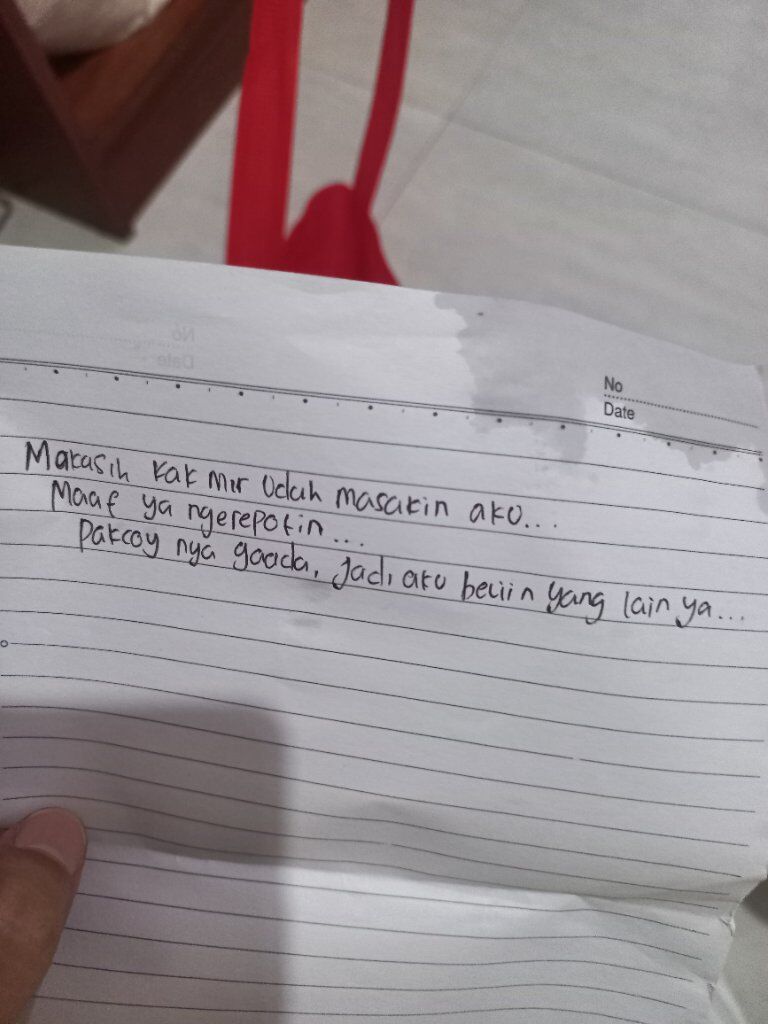 No
Date
Makasih kak mir udah masakin aku...
Maaf ya ngerepotin...
Pakcoy nya gaada, jadi aku beliin yang lain ya...